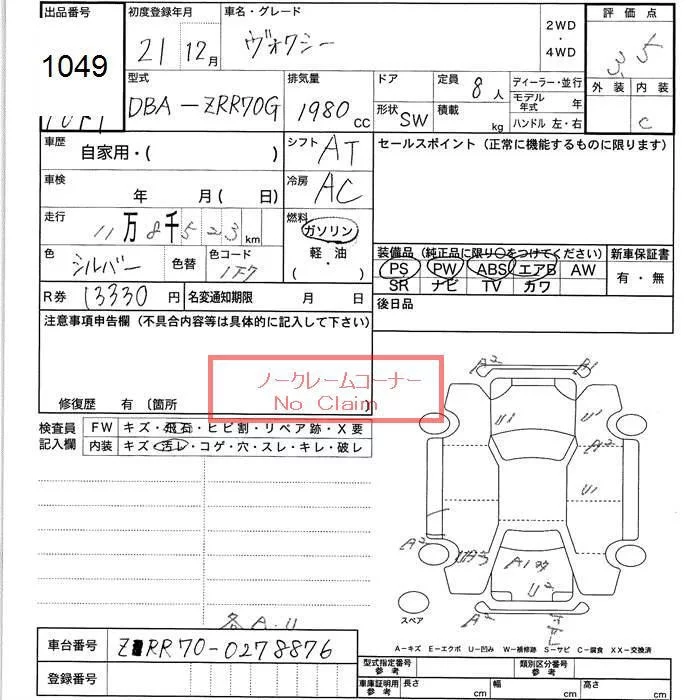 出品番号 初度登録年月 車名・グレード 2WD・4WD 評価点
1049 21年12月 ヴォクシー 3.5
型式 DBA-ZRR70G 排気量 1980cc ドア 形状 SW 定員 8人 積載 kg
ディーラー・並行 モデル年式 年 ハンドル 左・右
外装 内装 C
車歴 自家用・( ) シフト AT
セールスポイント (正常に機能するものに限ります)
車検 年 月( 日) 冷房 AC
走行 11万8千523km 燃料 ガソリン・軽油・
色 シルバー 色替 色コード 1F7
装備品 (純正品に限り○をつけてください) 新車保証書
PS PW ABS エアB AW 有・無
SR ナビ TV カワ
R券 13330円 名変通知期限 月 日
後日品
注意事項申告欄 (不具合内容等は具体的に記入して下さい)
ノークレームコーナー
No Claim
修復歴 有 〔箇所 〕
検査員記入欄 FW キズ・飛石・ヒビ割・リペア跡・X要
内装 キズ・汚レ・コゲ・穴・スレ・キレ・破レ
A2
U1
A2
U1
A2
U2
A2
スペア
各A.U
A-キズ E-エクボ U-凹み W-補修跡 S-サビ C-腐食 XX-交換済
車台番号 ZRR70-0278876
登録番号
型式指定番号 参考 類別区分番号 参考
車庫証明用 参考 長さ cm 幅 cm 高さ cm